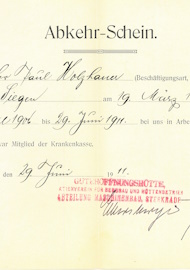 Abkehr-Schein.
Paul Holzhauer (Beschäftigungsart,
Siegen am 19 März
1906 bis 29 Juni 1911. bei uns in Arbe
war Mitglied der Krankenkasse,
den 29 Juni 11.
GUTEHOFFNUNGSHÜTTE,
AKTIENVEREIN FÜR BERGBAU UND HÜTTENBETRIEB
ABTEILUNG MASCHINENBAU, STERKRADE